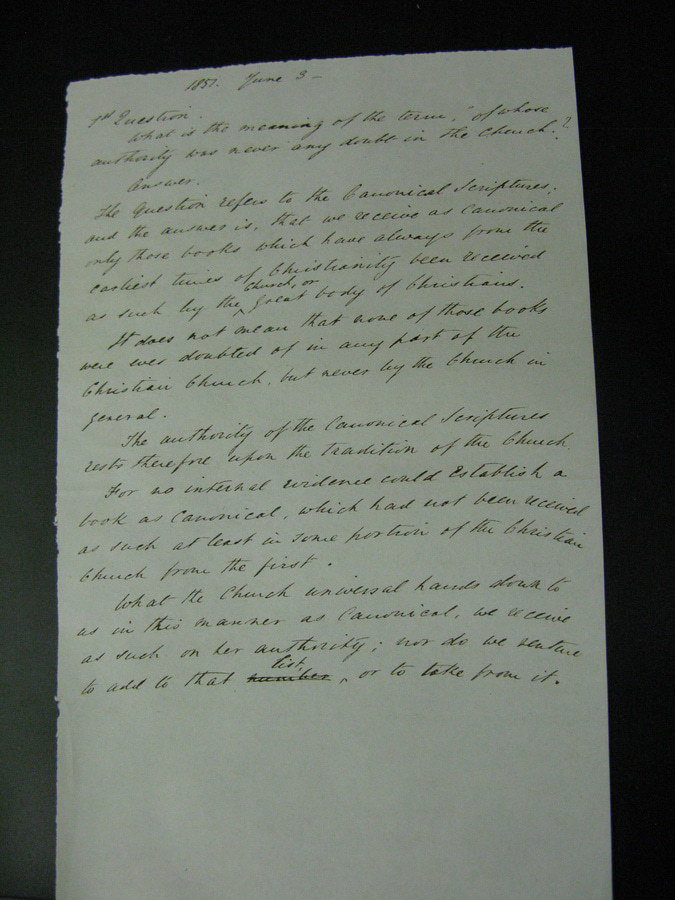 1851. June 3 -
1st Question.
What is the meaning of the term, "of whose
authority was never any doubt in the Church."?
Answer.
The Question refers to the Canonical Scriptures;
and the answer is, that we receive as Canonical
only those books which have always from the
earliest times of Christianity been received
as such by the Church, or great body of Christians.
It does not mean that none of those books
were ever doubted of in any part of the
Christian Church, but never by the Church in
general.
The authority of the Canonical Scriptures
rests therefore upon the tradition of the Church.
For no internal evidence could establish a
book as Canonical, which had not been received
as such at least in some portion of the Christian
Church from the first.
What the Church universal hands down to
us in this manner as Canonical, we receive
as such on her authority; nor do we venture
to add to that number list, or to take from it.